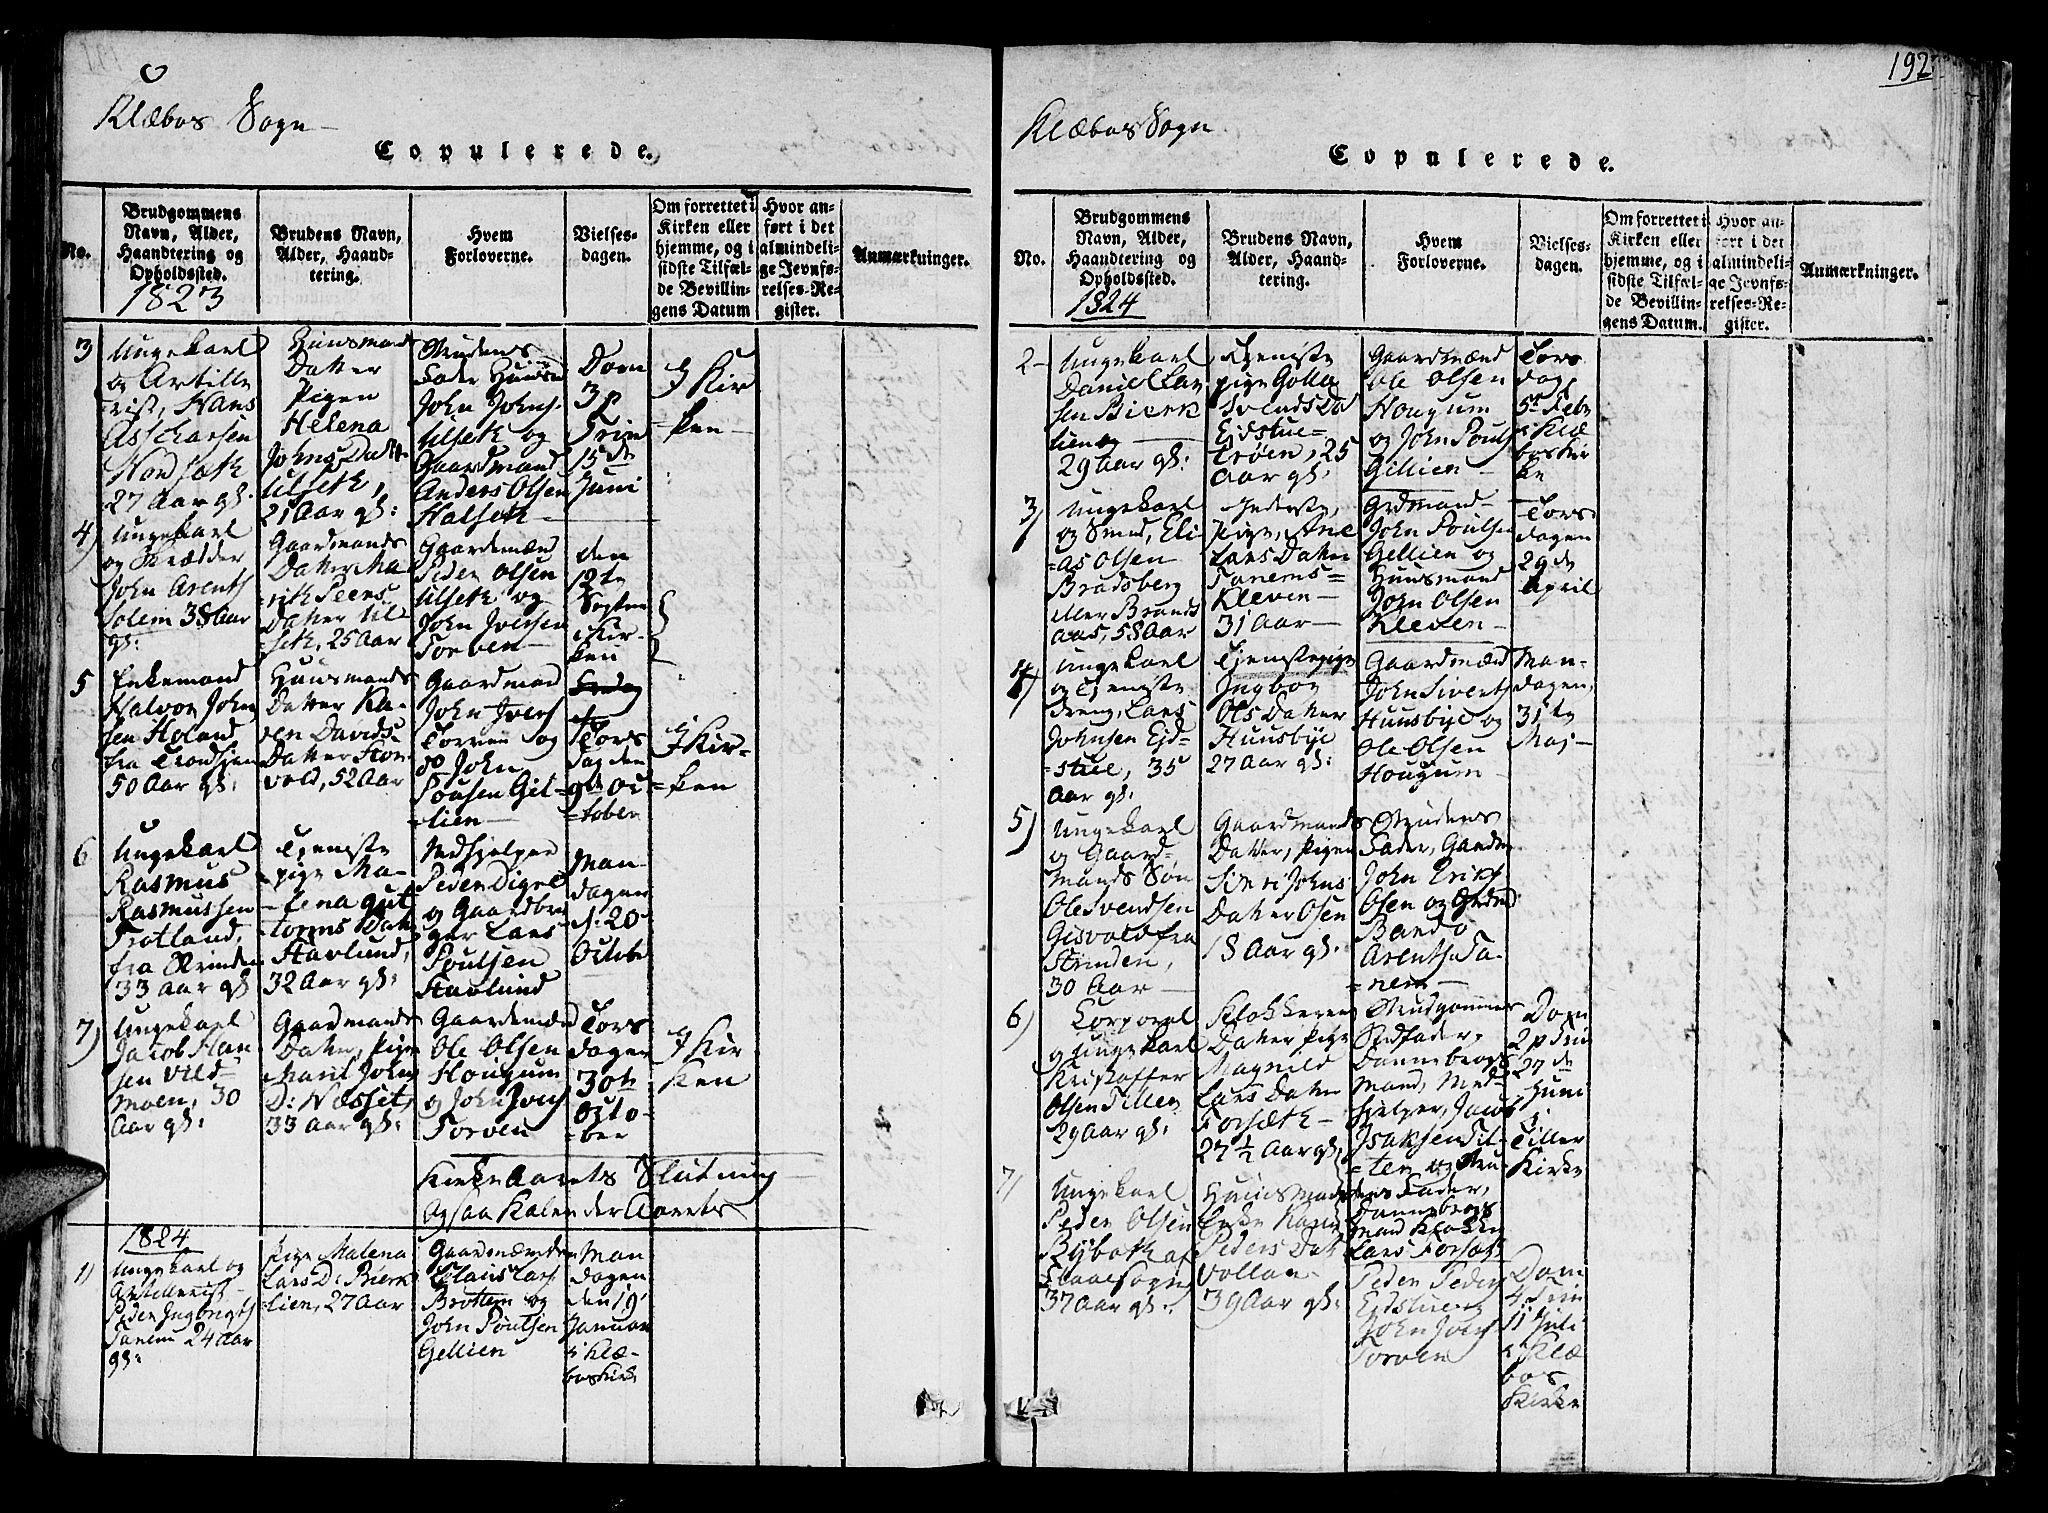 Klæbos Sogn
Copulerede.
No.
Brudgommens
Navn, Alder,
Haandtering og
Opholdssted.
1823
Brudens Navn,
Alder, Haand-
tering.
Hvem
Forloverne.
Vielses-
dagen.
Om forrettet i
Kirken eller
hjemme, og i
sidste Tilfæl-
de Bevillin-
gens Datum
Hvor an-
ført i det
almindeli-
ge Jevnfø-
relses-Re-
gister.
Anmærkninger.
3
Ungekarl
og Artille
rist, Hans
Nordsæth
27 Aar gl.
Huusmands
Datter
Pigen
Helena
Johns Datt
Ulseth,
21 Aar gl:
Brudens
Fader Huusm
John Johns.
Ulseth og
Gaardmand
Anders Olsen
Halseth
Dom
3 p
Trin
15de
Juni
I Kir
ken
4)
Ungekarl
og Skrædder
John Arents
Solem 38 Aar
gl:
Gaardmands
Datter Ma
rit Peers
Datter Ul
seth, 25 Aar
Gaardmænd
Peder Olsen
Ulseth og
John Iversen
Torven
den
12te
Septem
i Kir-
ken
5
Enkemand
Halvor John
sen Holand
fra Trondhjem
50 Aar gl:
Huusmands
Datter Ka-
ren Davids-
Datter Hon
vold, 52 Aar
Gaardmand
John Ivers
Torven og
do John
Poulsen Gel-
lien
Tors
dag den
9de Oc
tober
I Kir-
ken
6
Ungekarl
Rasmus
Rasmussen
Trotland,
fra Strinden
33 Aar gl
Tjeniste
pige Ma-
lena Gut
torms Datt
Stavlund,
32 Aar gl:
Medhjelper
Peder Digel
og Gaardbru
ger Lars
Poulsen
Stavlund
Man
dagen
d: 20
Octob
7)
Ungekarl
Jacob Han
sen Vild
moen, 30
Aar gl:
Gaardmands
Datter, Pigen
Marit Johns
D: Nesset,
33 Aar gl:
Gaardmænd
Ole Olsen
Hougum
og John Ivers
Torven
Tors
dagen
30te
Octo-
ber
I Kir
ken
Kirke Aarets Slutning
Ogsaa Kalender Aarets
1824
1)
Ungekarl og
Artillerist
Peder Ingbrigts
Tanem 24 Aar
gl:
Pige Malena
Lars D: Bierk
lien, 27 Aar
Gaardmændene
Claus Lars
Brottem og
John Poulsen
Gellien
Man
dagen
den 19
Januar
i Klæ-
bos Kirk
192
Klæbos Sogn
Copulerede.
No.
Brudgommens
Navn, Alder,
Haandtering og
Opholdssted.
1824
Brudens Navn,
Alder, Haand-
tering.
Hvem
Forloverne.
Vielses-
dagen.
Om forrettet i
Kirken eller
hjemme, og i
sidste Tilfæl-
de Bevillin-
gens Datum.
Hvor an-
ført i det
almindeli-
ge Jevnfø-
relses-Re-
gister.
Anmærkninger.
2
Ungekarl
Daniel Lar
sen Bierk
lien
29 Aar gl:
Tjeniste
pige Golla
Svends D
Eidstue
trøen, 25
Aar gl.
Gaardmænd
Ole Olsen
Hougum
og John Pouls
Gellien
Tors
dag
5te Febr
i Klæ
bos Kir
ke
3)
Ungekarl
og Smed, Eli
as Olsen
Bradsberg
eller Brands
aas, 58 Aar
Inderste,
Pige, Ane
Lars Datter
Tanems-
Kleven
31 Aar
Grdmand
John Poulsen
Gellien og
Huusmand
John Olsen
Kleven
Tors
dagen
29de
April
4)
Ungekarl
og Tjeniste
dreng, Lars
Johnsen Eid-
stue, 35
Aar gl.
Tjenstepige
Ingbor
Ols Datter
Huusbye
27 Aar gl:
Gaardmænd
John Siverts
Huusbye og
Ole Olsen
Hougum
Man-
dagen,
31te
Maj
5)
Ungekarl
og Gaard-
mands Søn
Ole Svendsen
Gisvold fra
Strinden,
30 Aar
Gaardmands
Datter, Pigen
Siri Johns
Datter Osen
18 Aar gl:
Brudens
Fader, Gaardm
John Eriks
Osen og Grdmd
Bardo
Arents Ta-
nem
6)
Corporal
og Ungekarl
Kristoffer
Olsen Tiller
29 Aar gl:
Klokkerens
Datter Pige
Magnild
Lars Datter
Forsæth
27 1/2 Aar gl.
Brudgommens
Stedfader,
Dannebrogs
Mand, Med-
hjelper, Jacob
Isaksen Til-
ler og Bru
dens Fader,
Dannebrogs
mand Klokker
Lars Forsæth
Dom
2 p Trin
27de
Juni
i
Tiller
Kirke
7)
Ungekarl
Peder Olsen
Bysvoth af
Flaae Sogn
37 Aar gl.
Huusmands
Enke Karen
Peders Datt
Vollan
39 Aar gl:
Peder Peders
Eidstueng
John Ivers
Torven
Dom
4 Trin
11 Juli
i Klæ
bos
Kirke